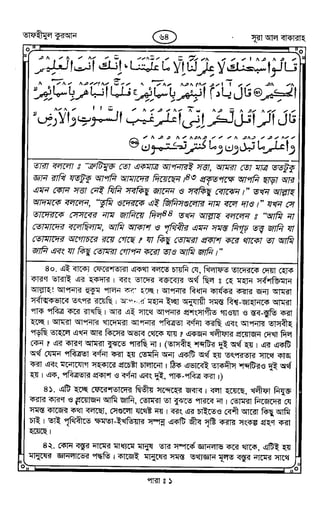 তাফহীমুল কুরআন ৬৪ সূরা আল বাকারাহ
قَالُوا سُبْحٰنَكَ لَا عِلْمَ لَنَا إِلَّا مَا عَلَّمْتَنَا ۖ إِنَّكَ أَنْتَ الْعَلِيمُ
الْحَكِيمُ قَالَ يٰٓاٰدَمُ أَنْبِئْهُمْ بِأَسْمَائِهِمْ ۚ فَلَمَّا أَنْبَأَهُمْ بِأَسْمَائِهِمْ
قَالَ أَلَمْ أَقُلْ لَكُمْ إِنِّي أَعْلَمُ غَيْبَ السَّمٰوٰتِ وَالْأَرْضِ
وَأَعْلَمُ مَا تُبْدُونَ وَمَا كُنْتُمْ تَكْتُمُونَ
তারা বললো : “ত্রুটিমুক্ত তো একমাত্র আপনারই সত্তা, আমরা তো মাত্র ততটুকু
জ্ঞান রাখি যতটুকু আপনি আমাদের দিয়েছেন।৪৩ প্রকৃতপক্ষে আপনি ছাড়া আর
এমন কোন সত্তা নেই যিনি সবকিছু জানেন ও সবকিছু বোঝেন।” তখন আল্লাহ
আদমকে বললেন, “তুমি ওদেরকে এই জিনিসগুলোর নাম বলে দাও।” যখন সে
তাদেরকে সেসবের নাম জানিয়ে দিল৪৪ তখন আল্লাহ বললেন : “আমি না
তোমাদের বলেছিলাম, আমি আকাশ ও পৃথিবীর এমন সমস্ত নিগূঢ় তত্ত্ব জানি যা
তোমাদের অগোচরে রয়ে গেছে ? যা কিছু তোমরা প্রকাশ করে থাকো তা আমি
জানি এবং যা কিছু তোমরা গোপন করো তাও আমি জানি।”
৪০. এই বাক্যে ফেরেশতারা একথা বলতে চায়নি যে, খিলাফত তাদেরকে দেয়া হোক
কারণ তারাই এর হকদার। বরং তাদের বক্তব্যের অর্থ ছিল : হে মহান সর্বশক্তিমান
আল্লাহ! আপনার হুকুম পালন করা হচ্ছে। আপনার বিধান কার্যকর করার জন্য আমরা
সর্বাত্মকভাবে তৎপর রয়েছি। মহান ইচ্ছা অনুযায়ী সমস্ত বিশ্ব-জাহানকে আমরা
পাক পবিত্র করে রাখছি। আর এই সাথে আপনার প্রশংসাগীত গাওয়া ও স্তব-স্তুতি করা
হচ্ছে। আমরা আপনার খাদেমরা আপনার পবিত্রতা বর্ণনা করছি এবং আপনার তাসবীহ
পড়ছি তাহলে এখন আর কিসের অভাব থেকে যায় ? একজন খলীফার প্রয়োজন দেখা দিল
কেন ? এর কারণ আমরা বুঝতে পারছি না। (তাসবীহ শব্দটির দুই অর্থ হয়। এর একটি
অর্থ যেমন পবিত্রতা বর্ণনা করা হয় তেমনি অন্য একটি অর্থ হয় তৎপরতার সাথে কাজ
করা এবং মনোযোগ সহকারে প্রচেষ্টা চালানো। ঠিক এভাবেই তাকদীস শব্দটিরও দুই অর্থ
হয়। এক, পবিত্রতার প্রকাশ ও বর্ণনা এবং দুই, পাক-পবিত্র করা।)
৪১. এটি হচ্ছে ফেরেশতাদের দ্বিতীয় সন্দেহের জবাব। বলা হয়েছে, খলীফা নিযুক্ত
করার কারণ ও প্রয়োজন আমি জানি, তোমরা তা বুঝতে পারবে না। তোমরা নিজেদের যে
সমস্ত কাজের কথা বলছো, সেগুলো যথেষ্ট নয়। বরং এর চাইতেও বেশী আরো কিছু আমি
চাই। তাই পৃথিবীতে ক্ষমতা-ইখতিয়ার সম্পন্ন একটি জীব সৃষ্টি করার সংকল্প গ্রহণ করা
হয়েছে।
৪২. কোন বস্তুর নামের মাধ্যমে মানুষ তার সম্পর্কে জ্ঞানলাভ করে থাকে, এটিই হয়
মানুষের জ্ঞানলাভের পদ্ধতি। কাজেই মানুষের সমস্ত তথ্যজ্ঞান মূলত বস্তুর নামের সাথে
পারা : ১